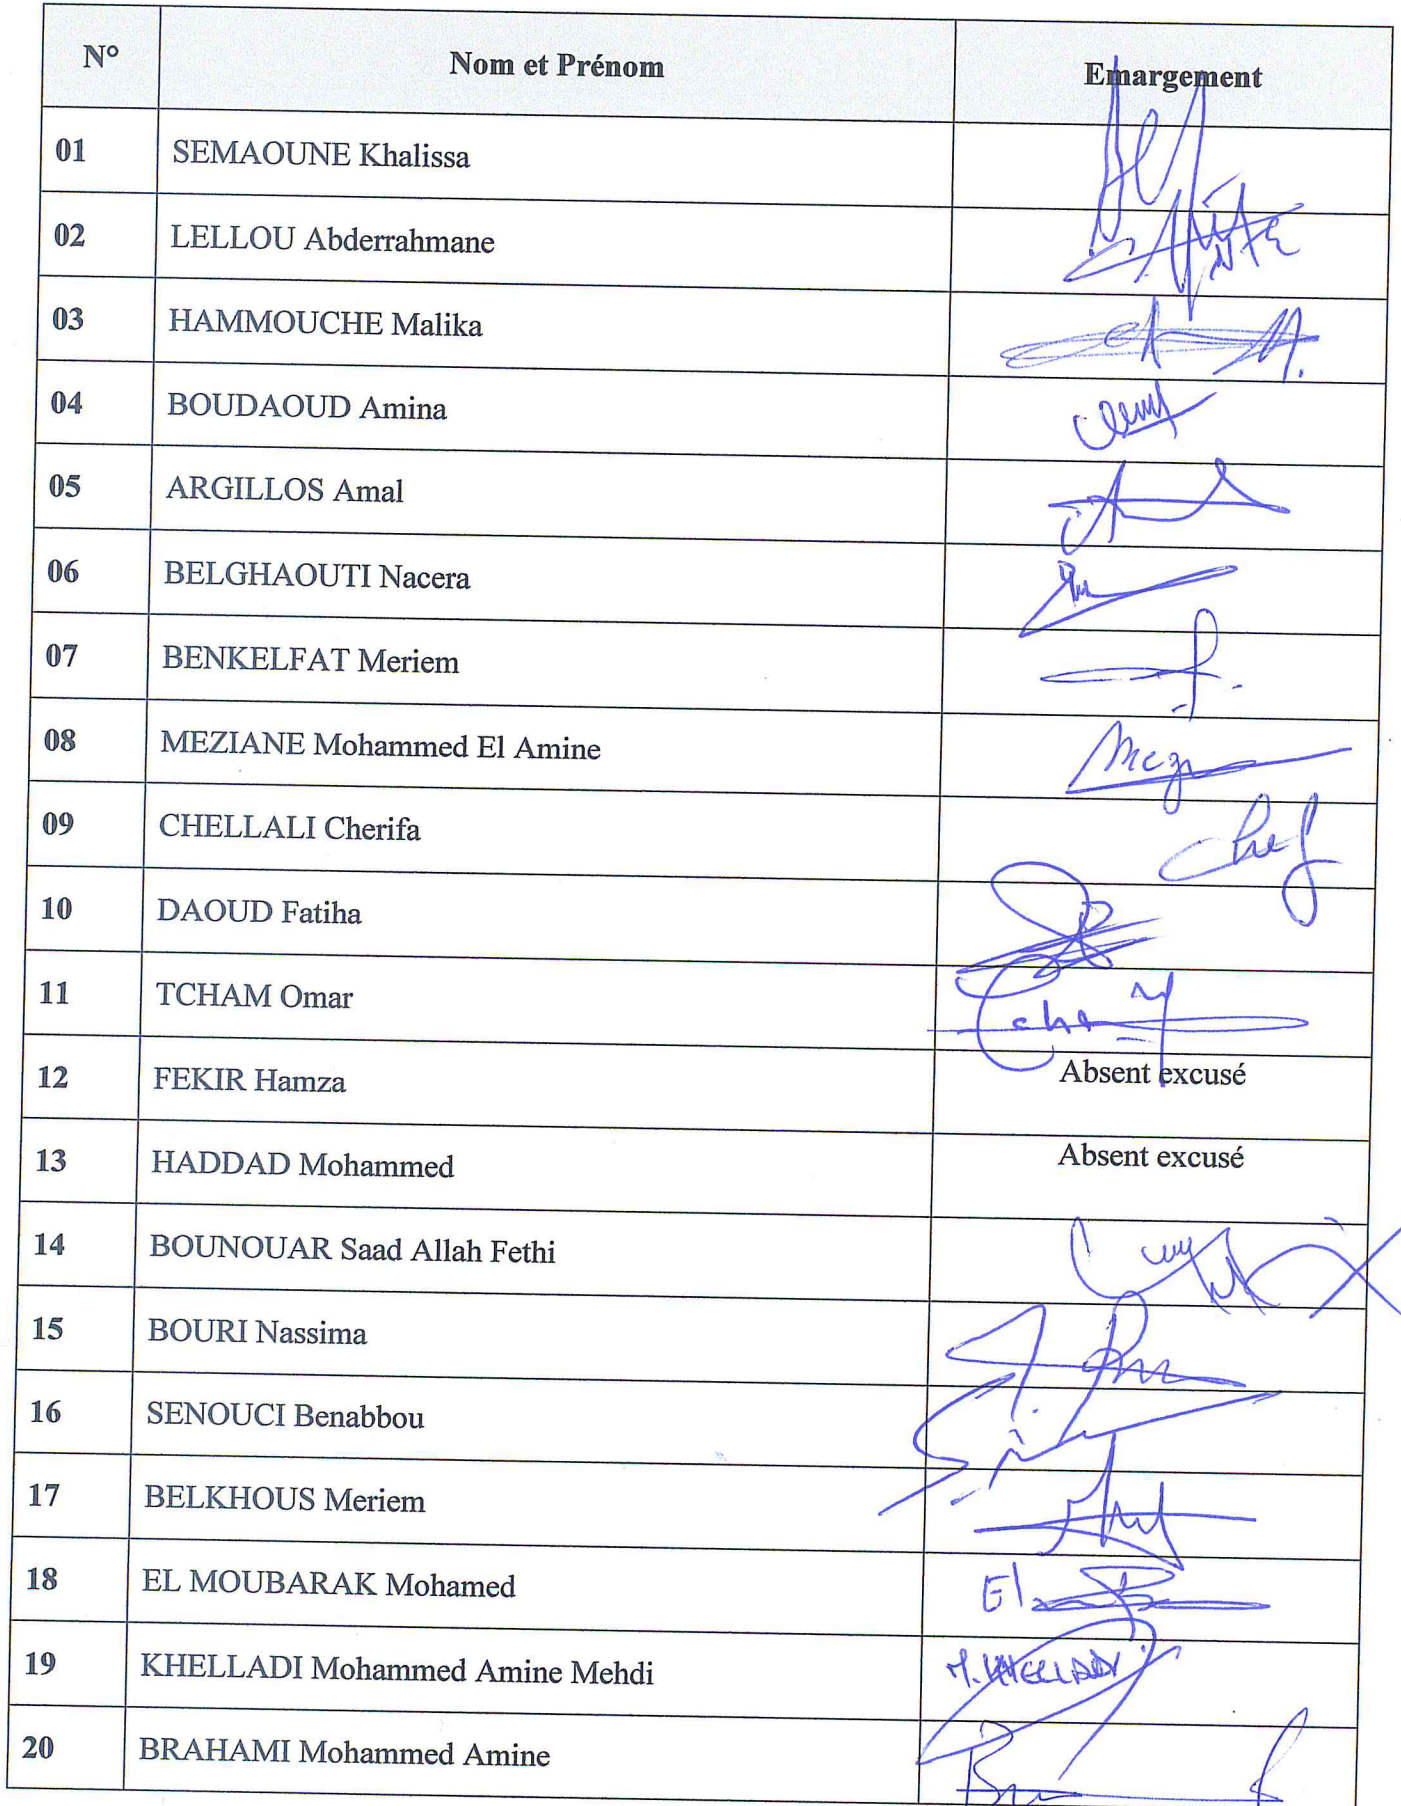 N° Nom et Prénom Emargement
01 SEMAOUNE Khalissa
02 LELLOU Abderrahmane
03 HAMMOUCHE Malika
04 BOUDAOUD Amina
05 ARGILLOS Amal
06 BELGHAOUTI Nacera
07 BENKELFAT Meriem
08 MEZIANE Mohammed El Amine
09 CHELLALI Cherifa
10 DAOUD Fatiha
11 TCHAM Omar
12 FEKIR Hamza Absent excusé
13 HADDAD Mohammed Absent excusé
14 BOUNOUAR Saad Allah Fethi
15 BOURI Nassima
16 SENOUCI Benabbou
17 BELKHOUS Meriem
18 EL MOUBARAK Mohamed
19 KHELLADI Mohammed Amine Mehdi M. KHELLADI
20 BRAHAMI Mohammed Amine